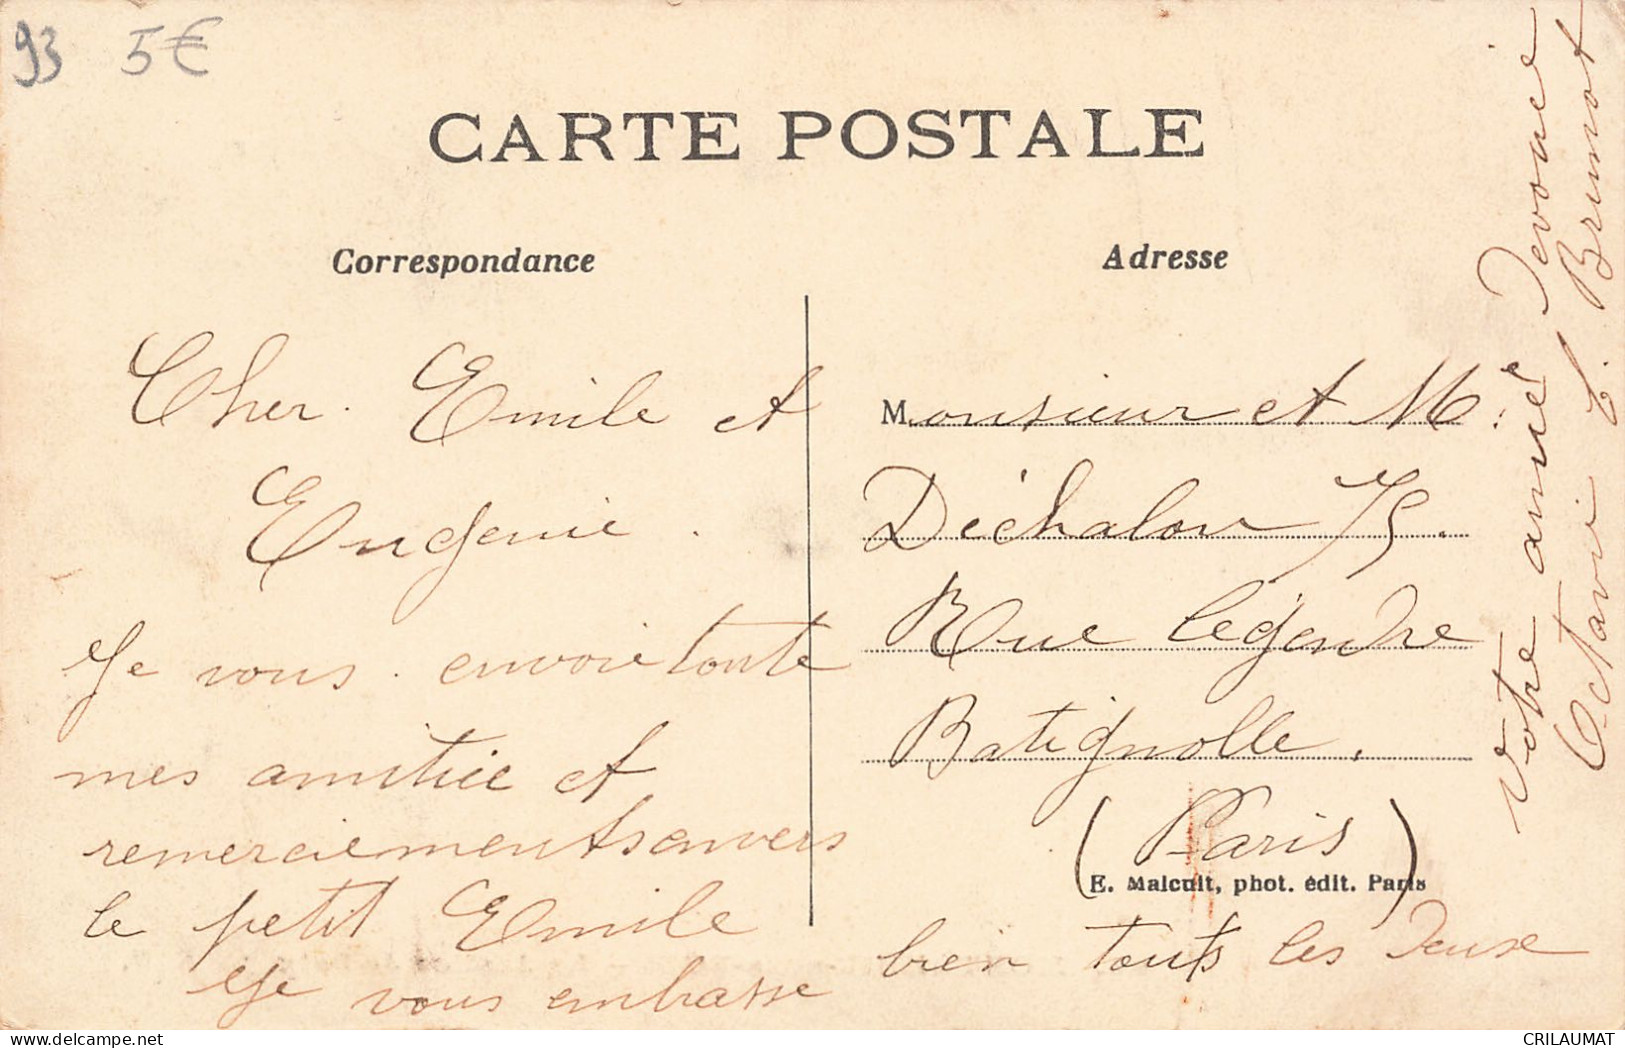 93 5€
CARTE POSTALE
Correspondance
Adresse
Cher Emile et
Eugenie.
Je vous envoie toute
mes amitiée et
remerciements envers
le petit Emile
Je vous embrasse
bien touts les deux
Monsieur et M.
Déchalou 75.
Rue Legendre
Batignolle.
(Paris)
E. Malcuit, phot. édit. Paris
Votre amie Devouée
Octavie E. Brunot
CRILAUMAT